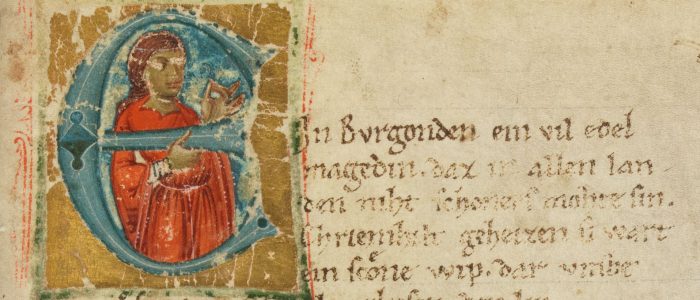 E
In Bvrgonden ein vil edel
magedin. daz in allen lan
den niht schoners mohte sin.
Chriemhilt geheizen v̂ wart
ein scone wip. dar vmbe